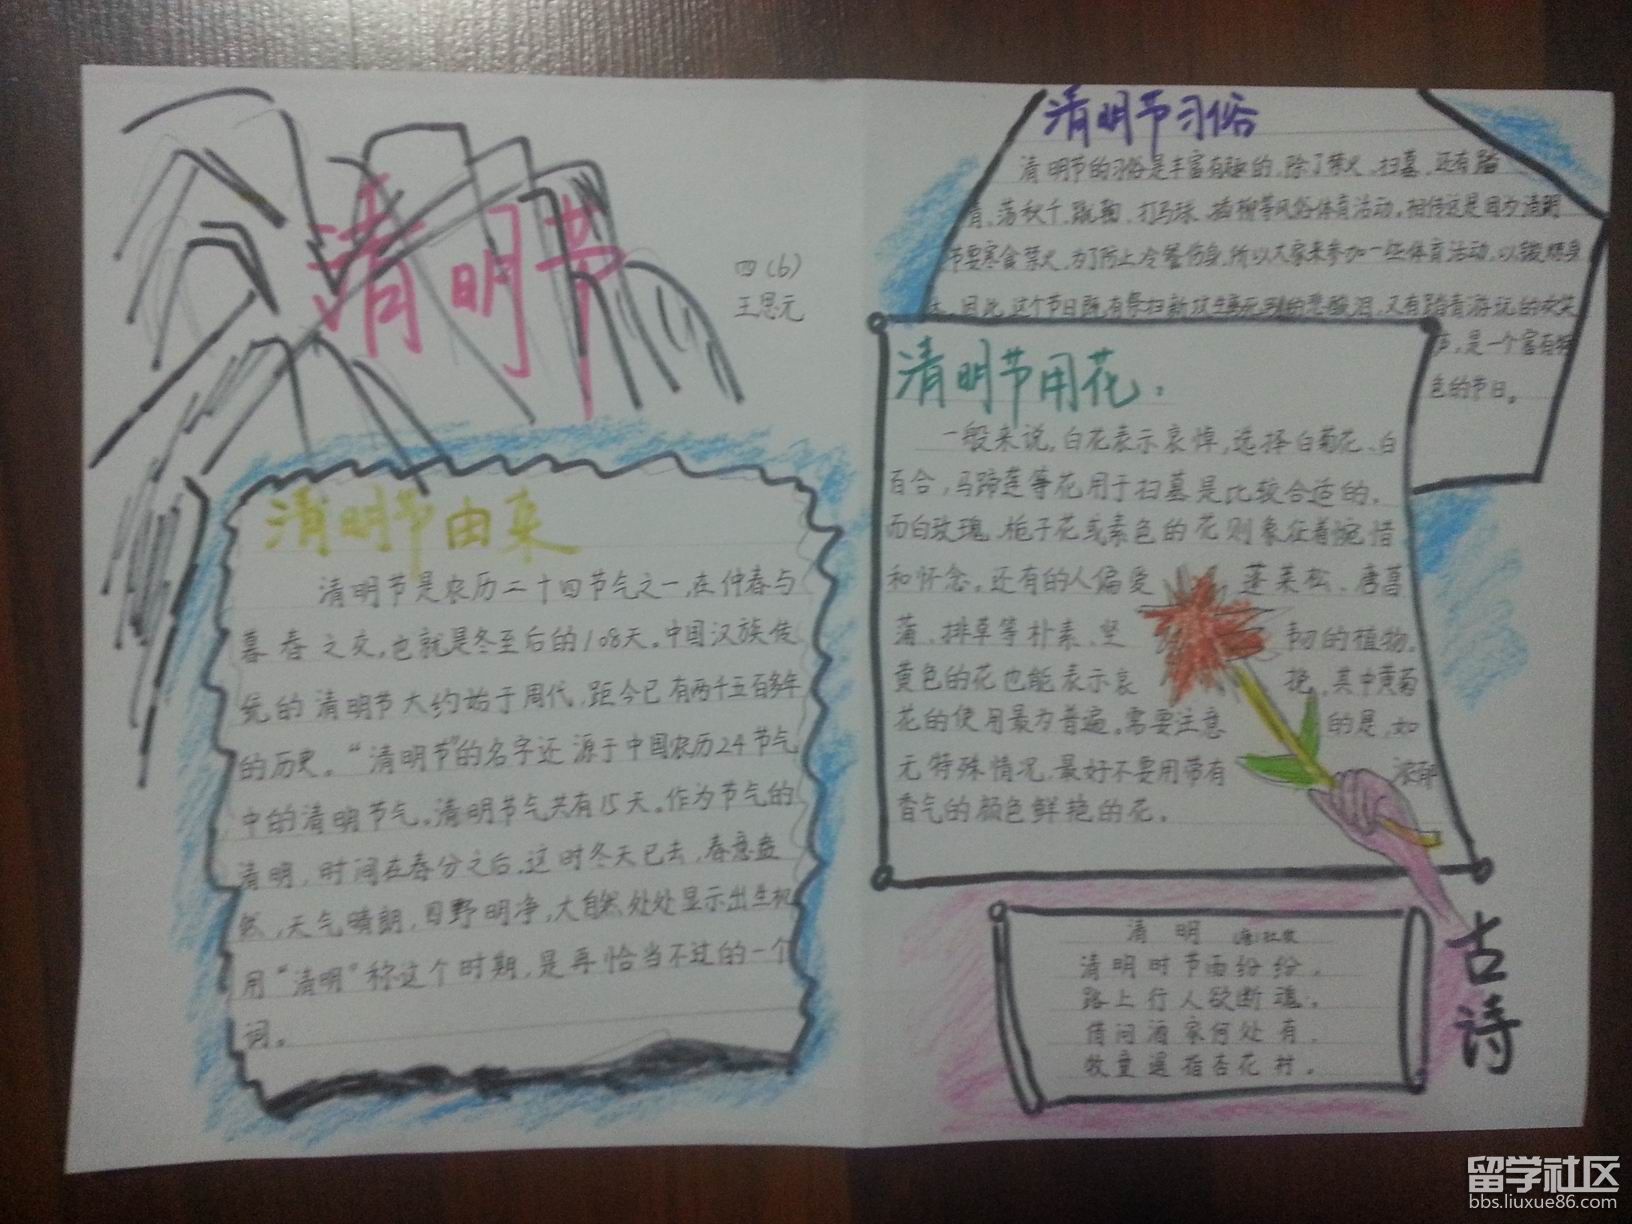 清明节
四(6)
王思元
清明节由来
清明节是农历二十四节气之一,在仲春与
暮春之交,也就是冬至后的108天。中国汉族传
统的清明节大约始于周代,距今已有两千五百多年
的历史。“清明节”的名字还源于中国农历24节气
中的清明节气。清明节气共有15天。作为节气的
清明,时间在春分之后,这时冬天已去,春意盎
然,天气晴朗,四野明净,大自然处处显示出生机
用“清明”称这个时期,是再恰当不过的一个
词。
清明节习俗
清明节的习俗是丰富有趣的,除了禁火、扫墓,还有踏
青、荡秋千、蹴鞠、打马球、插柳等风俗体育活动。相传这是因为清明
节要寒食禁火,为了防止冷餐伤身,所以大家来参加一些体育活动,以锻炼身
体。因此,这个节日既有祭扫新坟生离死别的悲酸泪,又有踏青游玩的欢笑
声,是一个富有特
色的节日。
清明节用花:
一般来说,白花表示哀悼,选择白菊花、白
百合,马蹄莲等花用于扫墓是比较合适的,
而白玫瑰、栀子花或素色的花则象征着惋惜
和怀念。还有的人偏爱蓬莱松、唐菖
蒲、排草等朴素、坚韧的植物。
黄色的花也能表示哀挽,其中黄菊
花的使用最为普遍。需要注意的是,如
无特殊情况,最好不要用带有浓郁
香气的颜色鲜艳的花。
清明 (唐)杜牧
清明时节雨纷纷,
路上行人欲断魂。
借问酒家何处有,
牧童遥指杏花村。
古诗
留学社区
bbs.liuxue86.com